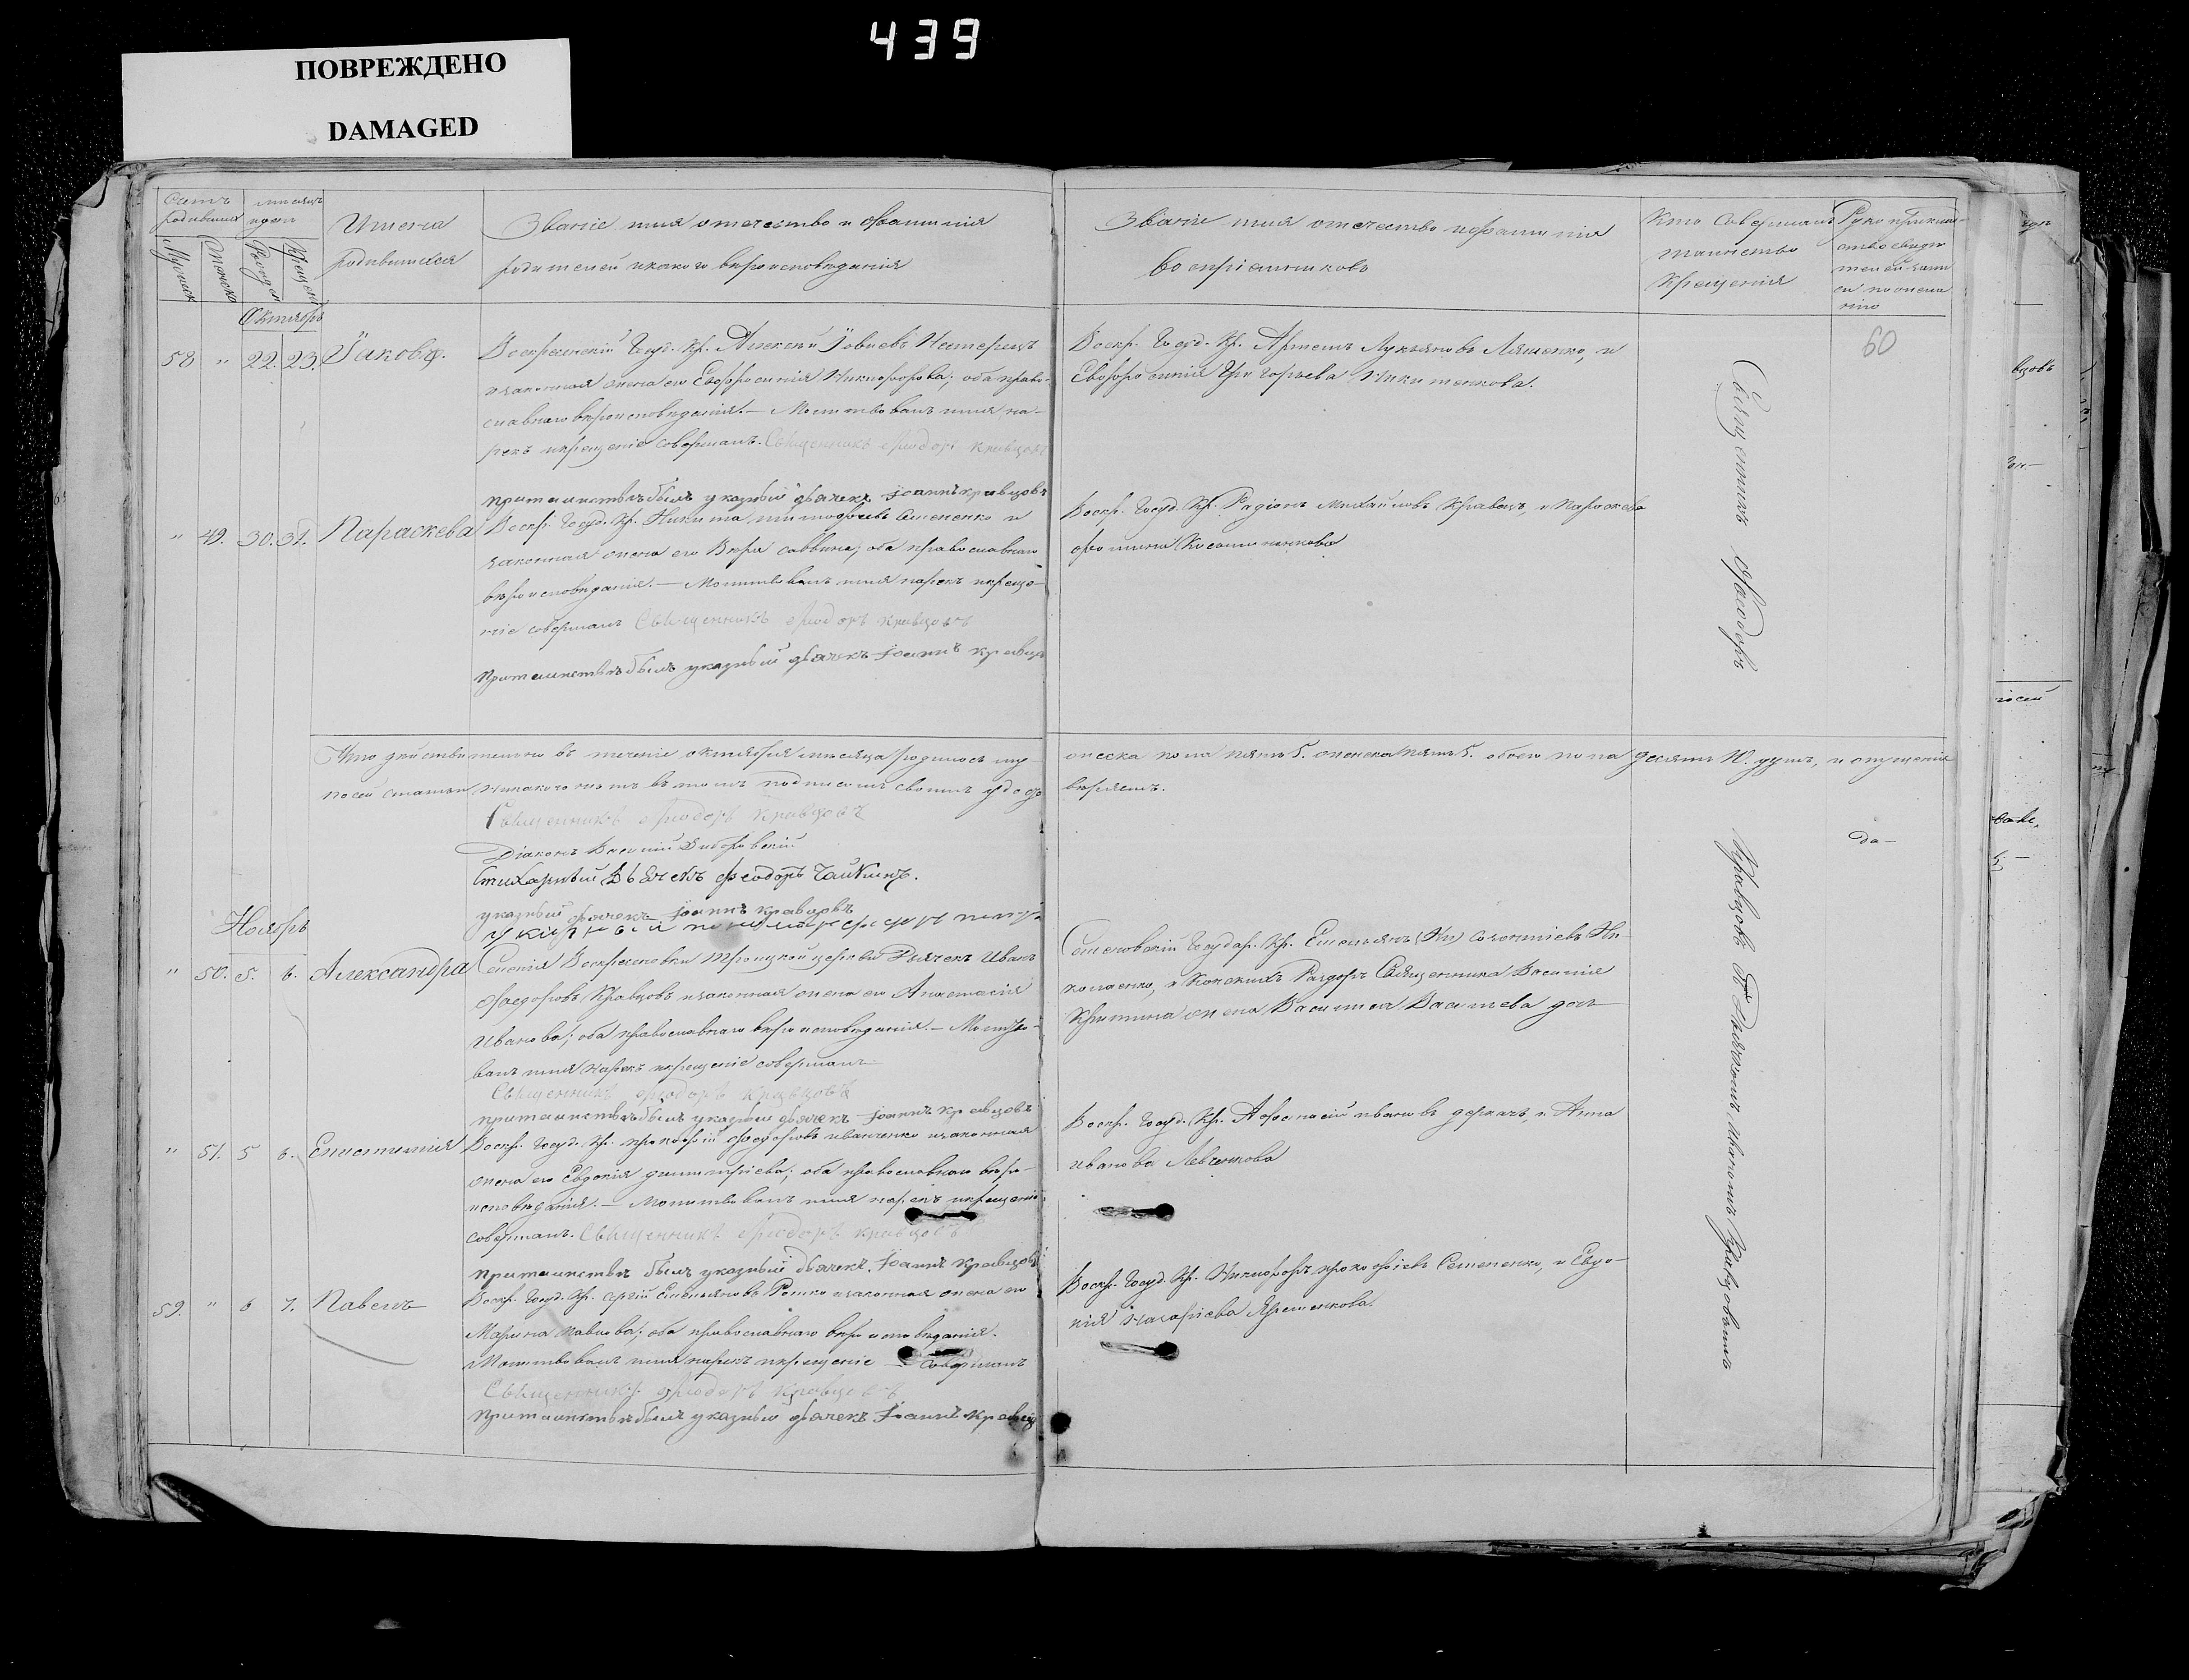 439
ПОВРЕЖДЕНО
DAMAGED
Счетъ родившихся
Мужеска
Женска
месяцъ и день
Рожден
Крещен
Имена родившихся
Званіе имя отечество и фамилія
родителей и какого вероисповеданія
Званіе имя отечество и фамилія
воспріемниковъ
Кто совершалъ таинство крещенія
Рукоприкладство свидетелей записи по желанію
60
Октябрь
58 " 22. 23. Іаковъ.
Воскресенскій Госуд. Кр. Алексей Іовлевъ Нестерецъ
и законная жена его Евфросинія Никифорова; оба право-
славнаго вероисповеданія. — Молитвовалъ имя на-
рекъ и крещеніе совершалъ. Священникъ Феодоръ Кравцовъ
при таинстве былъ указный дьячекъ Іоаннъ Кравцовъ
Воскр. Госуд. Кр. Артемъ Лукьяновъ Ляшенко, и
Евфросинія Григорьева Никитенкова.
" 49. 30. 31. Параскева
Воскр. Госуд. Кр. Никита Тимофеевъ Семененко и
законная жена его Вера Саввина; оба православнаго
вероисповеданія. — Молитвовалъ имя нарекъ и креще-
ніе совершалъ Священникъ Феодоръ Кравцовъ
При таинстве былъ указный дьячекъ Іоаннъ Кравцо
Воскр. Госуд. Кр. Радіонъ Михайловъ Кравецъ, и Параскева
Фомина
Священникъ Феодоръ
Что действительно въ теченіе октября месяца родилось му-
жеска пола пять 5. женска пять 5. обоего пола десять 10. душъ, и опущенія
по сей статьи никакого нетъ въ томъ подписомъ своимъ удосто
веряемъ.
Священникъ Феодоръ Кравцовъ
Діаконъ Василій
Стихарный Дьячекъ Феодоръ Чайкинъ.
указный дьячекъ Іоаннъ Кравцовъ
указный пономарь
да —
Ноябрь
" 50. 5. 6. Александра
Селенія Воскресенки Троицкой церкви Дьячекъ Иванъ
Феодоровъ Кравцовъ и законная жена его Анастасія
Иванова; оба православнаго вероисповеданія. — Молитво-
валъ имя нарекъ и крещеніе совершалъ
Священникъ Феодоръ Кравцовъ
при таинстве былъ указный дьячекъ Іоаннъ Кравцовъ
Семеновскій Государ. Кр. Емельянъ Ни-
колаенко, и Конскихъ Раздоръ Священника Василія
жена Васильева
Кравцовъ съ Дьячкомъ Иваномъ Кравцовымъ
" 51. 5 6. Епистимія
Воскр. Госуд. Кр. Прокофій Федоровъ Иванченко и законная
жена его Евдокія Димитріева; оба православнаго веро-
исповеданія. — Молитвовалъ имя нарекъ и крещеніе
совершалъ. Священникъ Феодоръ Кравцовъ
При таинстве былъ указный дьячекъ Іоаннъ Кравцовъ
Воскр. Госуд. Кр. Афанасій Ивановъ Деркачъ, и Анна
Иванова Левченкова
59. " 6 7. Павелъ
Воскр. Госуд. Кр. Сергій Емельяновъ и законная жена его
Марина Павлова; оба православнаго вероисповеданія.
Молитвовалъ имя нарекъ и крещеніе — совершалъ
Священникъ Феодоръ Кравцовъ
При таинстве былъ указный дьячекъ Іоаннъ Кравцо
Воскр. Госуд. Кр. Никифоръ Прокофіевъ Семененко, и Евдо-
кія Назаріева Яременкова.